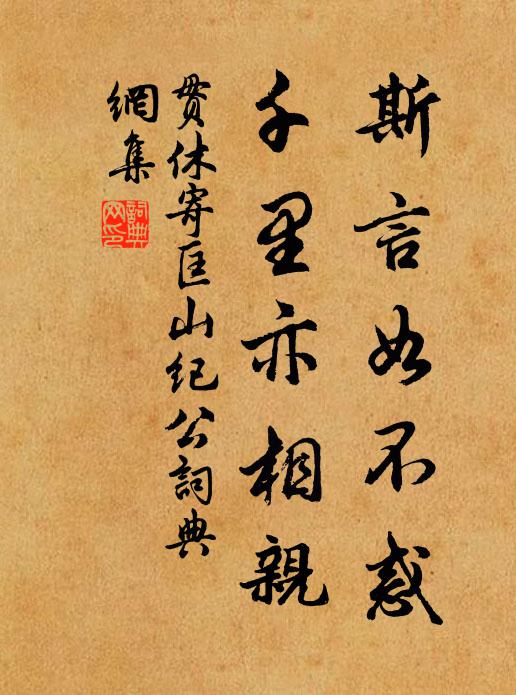 斯言如不惑
千里亦相親
貫休寄匡山紀公詞典
網集
詞典
网印